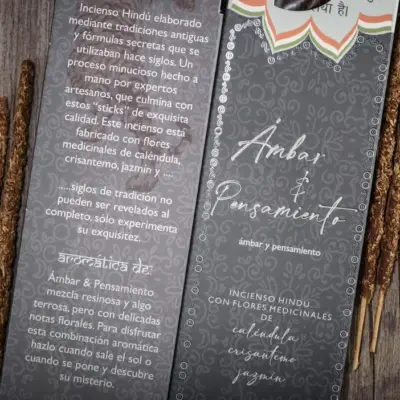 Incienso Hindú elaborado
mediante tradiciones antiguas
y fórmulas secretas que se
utilizaban hace siglos. Un
proceso minucioso hecho a
mano por expertos
artesanos, que culmina con
estos “sticks” de exquisita
calidad. Este incienso está
fabricado con flores
medicinales de caléndula,
crisantemo, jazmín y ...
.....siglos de tradición no
pueden ser revelados al
completo, sólo experimenta
su exquisitez.
aromática de:
Ámbar & Pensamiento
mezcla resinosa y algo
terrosa, pero con delicadas
notas florales. Para disfrutar
esta combinación aromática
hazlo cuando sale el sol o
cuando se pone y descubre
su misterio.
है।
Ámbar
&
Pensamiento
ámbar y pensamiento
INCIENSO HINDÚ
CON FLORES MEDICINALES
DE
caléndula
crisantemo
jazmín